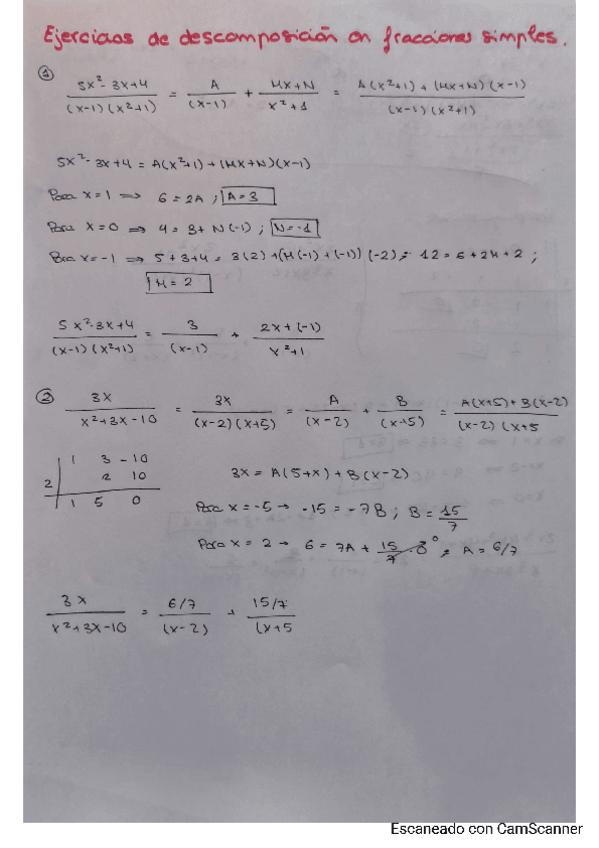 Ejercicios de descomposición en fracciones simples.
① (5x²-3x+4)/((x-1)(x²+1)) = A/(x-1) + (Mx+N)/(x²+1) = (A(x²+1)+(Mx+N)(x-1))/((x-1)(x²+1))
5x²-3x+4 = A(x²+1)+(Mx+N)(x-1)
Para x=1 ⇒ 6=2A ; A=3
Para x=0 ⇒ 4=3+N(-1) ; N=-1
Para x=-1 ⇒ 5+3+4 = 3(2)+(M(-1)+(-1))(-2) ; 12=6+2M+2 ;
M=2
(5x²-3x+4)/((x-1)(x²+1)) = 3/(x-1) + (2x+(-1))/(x²+1)
② 3x/(x²+3x-10) = 3x/((x-2)(x+5)) = A/(x-2) + B/(x+5) = (A(x+5)+B(x-2))/((x-2)(x+5
1 3 -10
2 2 10
1 5 0
3x = A(5+x)+B(x-2)
Para x=-5 → -15=-7B ; B=15/7
Para x=2 → 6=7A+15/7·0 0 ; A=6/7
3x/(x²+3x-10) = (6/7)/(x-2) + (15/7)/(x+5
Escaneado con CamScanner